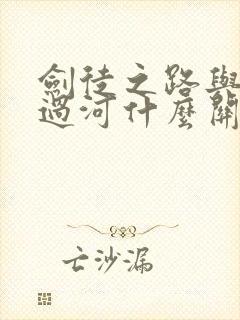 劍徒之路與
過河什麼關
亡沙漏